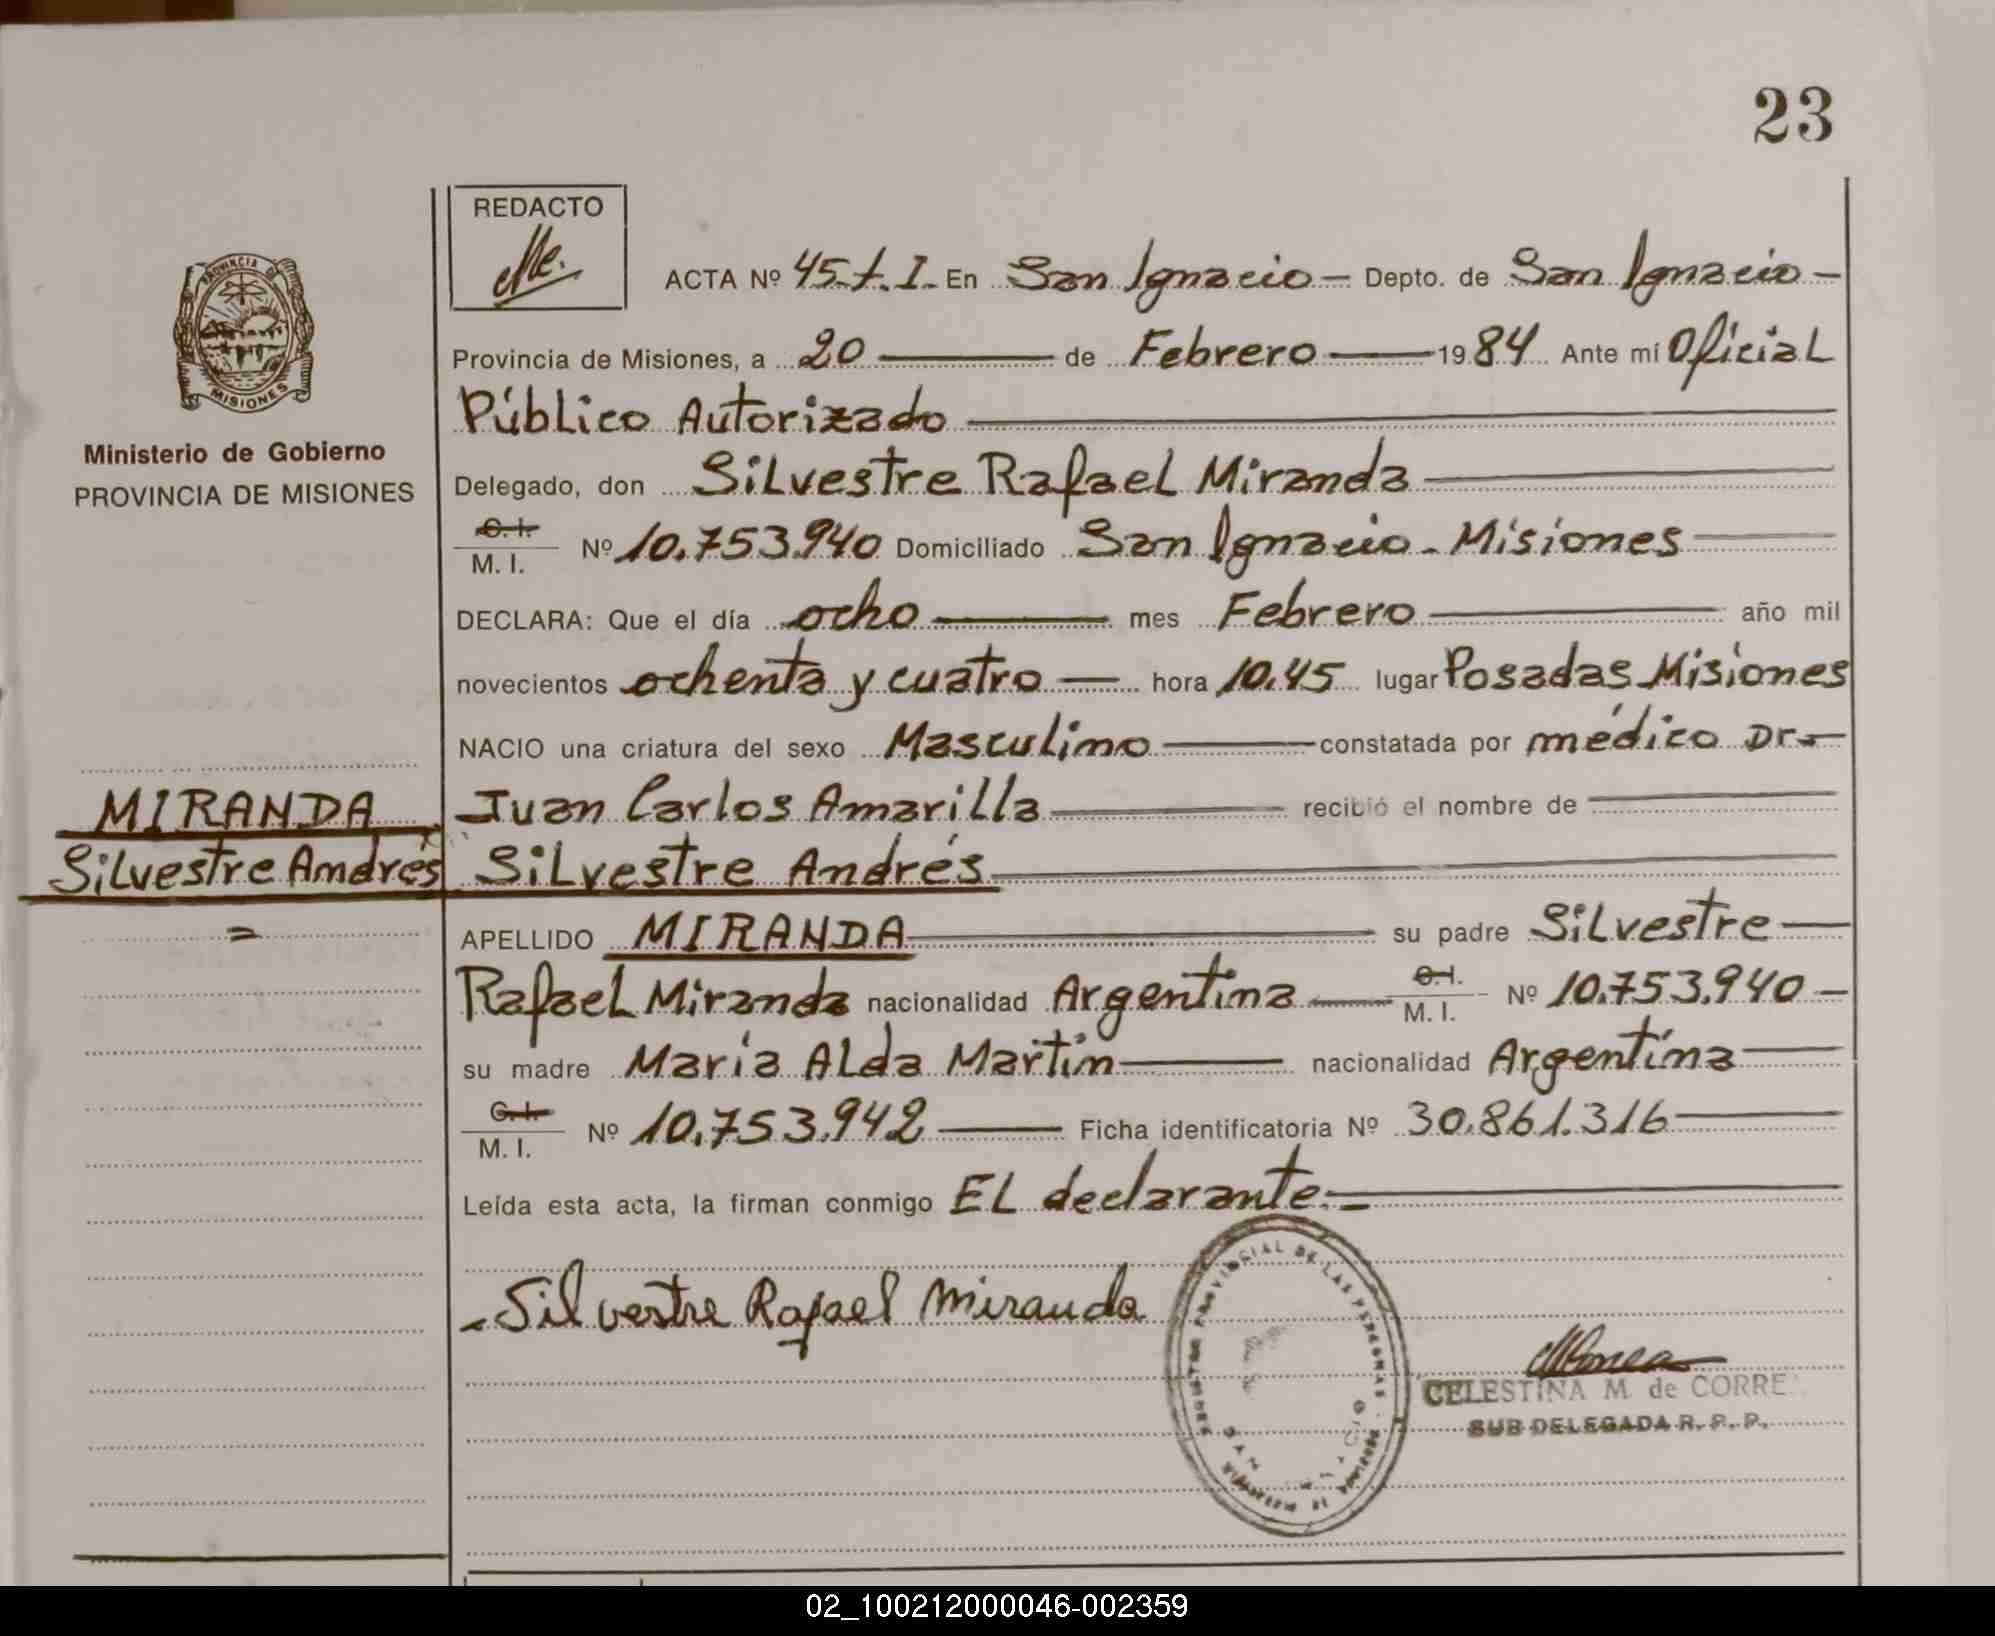 23
REDACTO
ACTA Nº 45.t.I. En San Ignacio — Depto. de San Ignacio —
Provincia de Misiones, a 20 de Febrero 1984 Ante mí Oficial
Público Autorizado
Delegado, don Silvestre Rafael Miranda
C.I.
M. I. Nº 10.753.940 Domiciliado San Ignacio - Misiones
DECLARA: Que el día ocho mes Febrero año mil
novecientos ochenta y cuatro hora 10.45 lugar Posadas Misiones
NACIO una criatura del sexo Masculino constatada por médico Dr.
Juan Carlos Amarilla recibió el nombre de
Silvestre Andrés
APELLIDO MIRANDA su padre Silvestre
Rafael Miranda nacionalidad Argentina C.I.
M. I. Nº 10.753.940
su madre María Alda Martín nacionalidad Argentina
C.I.
M. I. Nº 10.753.942 Ficha identificatoria Nº 30.861.316
Leída esta acta, la firman conmigo EL declarante.
Silvestre Rafael Miranda
PROVINCIA DE
MISIONES
Ministerio de Gobierno
PROVINCIA DE MISIONES
MIRANDA
Silvestre Andrés
REGISTRO PROVINCIAL DE LAS PERSONAS
CELESTINA M. de CORRE
SUB DELEGADA R. P. P.
02_100212000046-002359